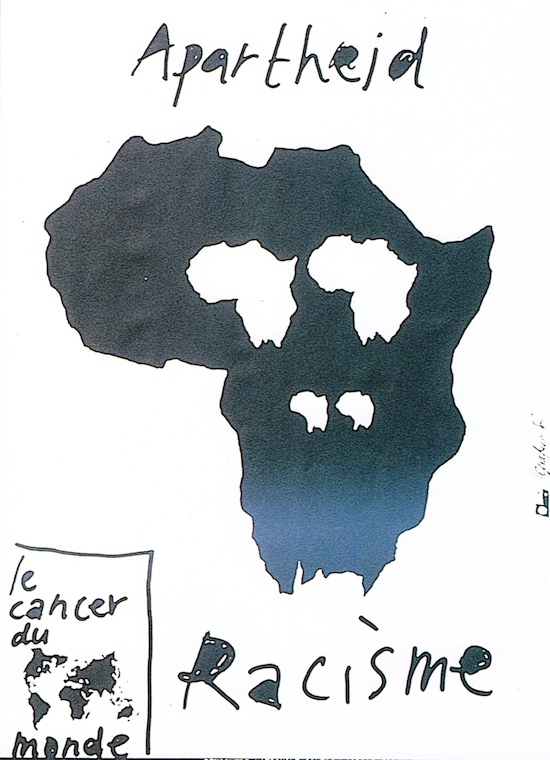 Apartheid
le
cancer
du
monde
Racisme